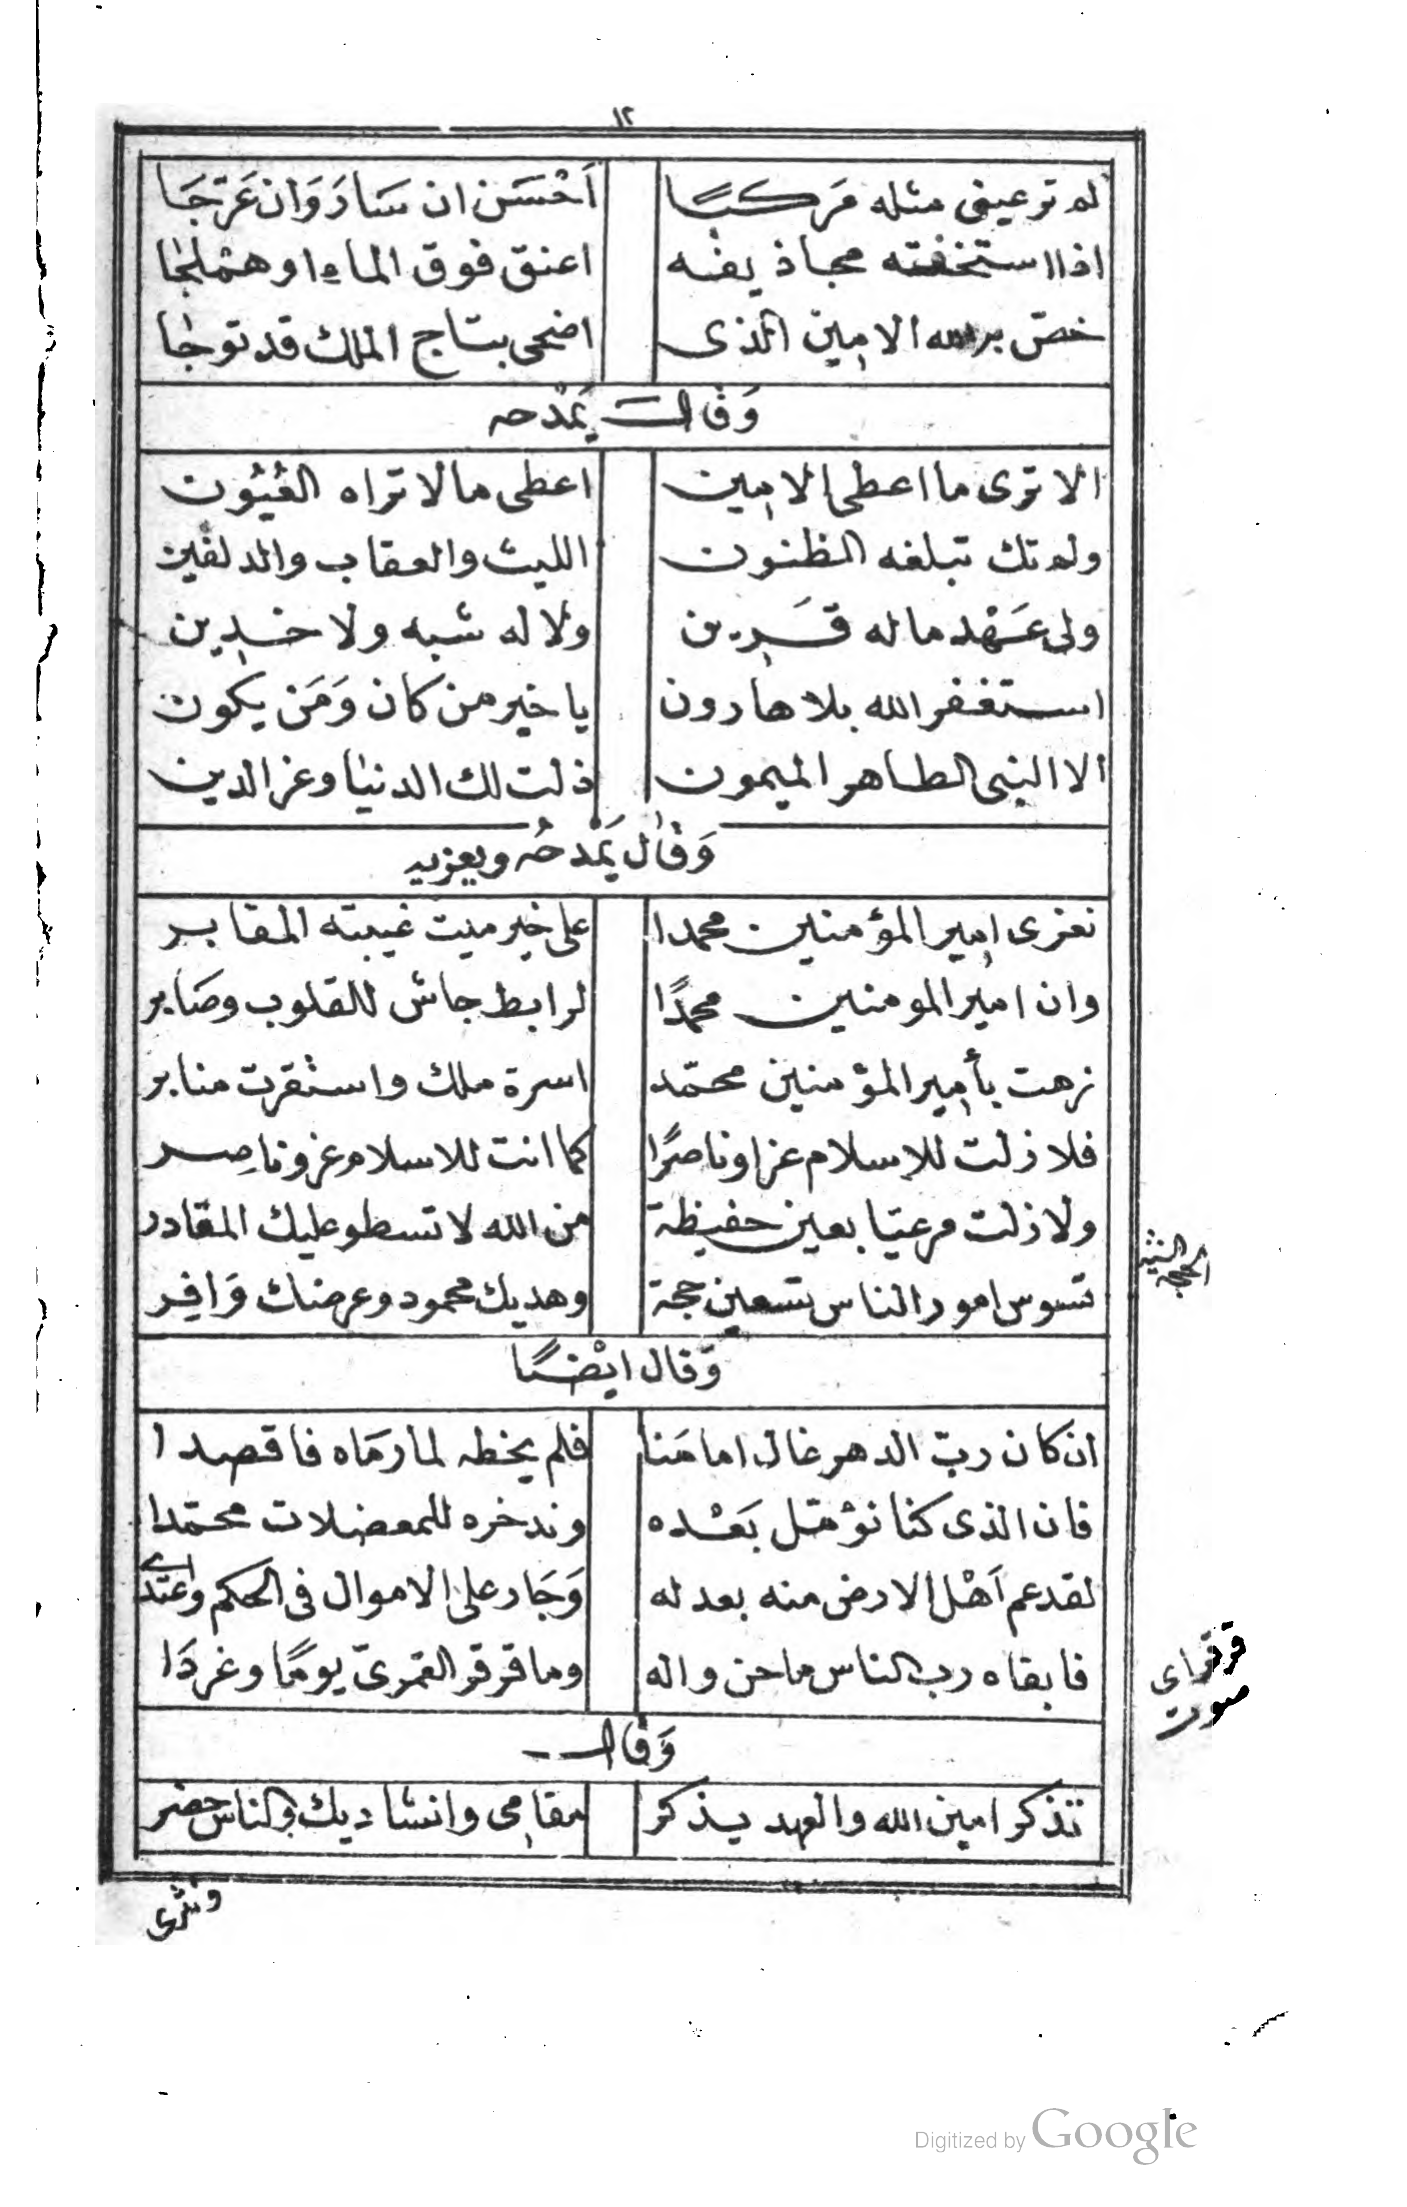 ١٢
لم تر عينى مثله مَركبًا اَحْسَن ان سَارَ وَان عَرّجَا
اذا استخفته مجاذيفه اعنق فوق الماء او هملجا
خصّ به الله الامين الذى اضحى بتاج الملك قد توجا
وَقال يَمْدحه
الا ترى ما اعطى الامين اعطى ما لا تراه العُيُون
ولم تك تبلغه الظنون الليث والعقاب والدلفين
ولى عَهْد ما له قَرِين ولا له شبه ولا خدين
استغفر الله بلا هارون يا خير من كان وَمَن يكون
الا النبى الطاهر الميمون ذلت لك الدنيا وعز الدين
وَقال يَمْدحُه ويعزيه
نعزى امير المؤمنين محمدا على خير ميت غيبته المقابر
وان امير المومنين محمدًا لرابط جاش للقلوب وصَابر
زهت بأمير المؤمنين محمّد اسرة ملك واستقرت منابر
فلا زلت للاسلام عزا وناصرًا كما انت للاسلام عز وناصِر
ولا زلت مرعيّا بعين حفيظة من الله لا تسطو عليك المقادر
تسوس امور الناس تسعين حجة وهديك محمود وعرضك وَافِر
الحجه السنه
وَقال ايْضًا
ان كان ربّ الدهر غال امامَنا فلم يخطه لما رمَاه فاقصدا
فان الذى كنا نؤمّل بَعْده وندخره للمعضلات محمّدا
لقد عم اَهْل الارض منه بعدله وَجَار على الاموال فى الحكم واعتدى
فابقاه رب الناس ما حن واله وما قرقر القمرىّ يومًا وغردَا
قرقر اى
صوت
وَقال
تذكر امين الله والعهد يذكر مقامى وانشاديك والناس حضر
ونثرى
Digitized by Google